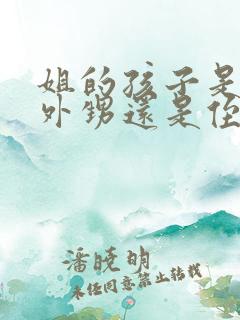 姐的孩子是
外甥還是侄
潘曉明
未经同意禁止转载